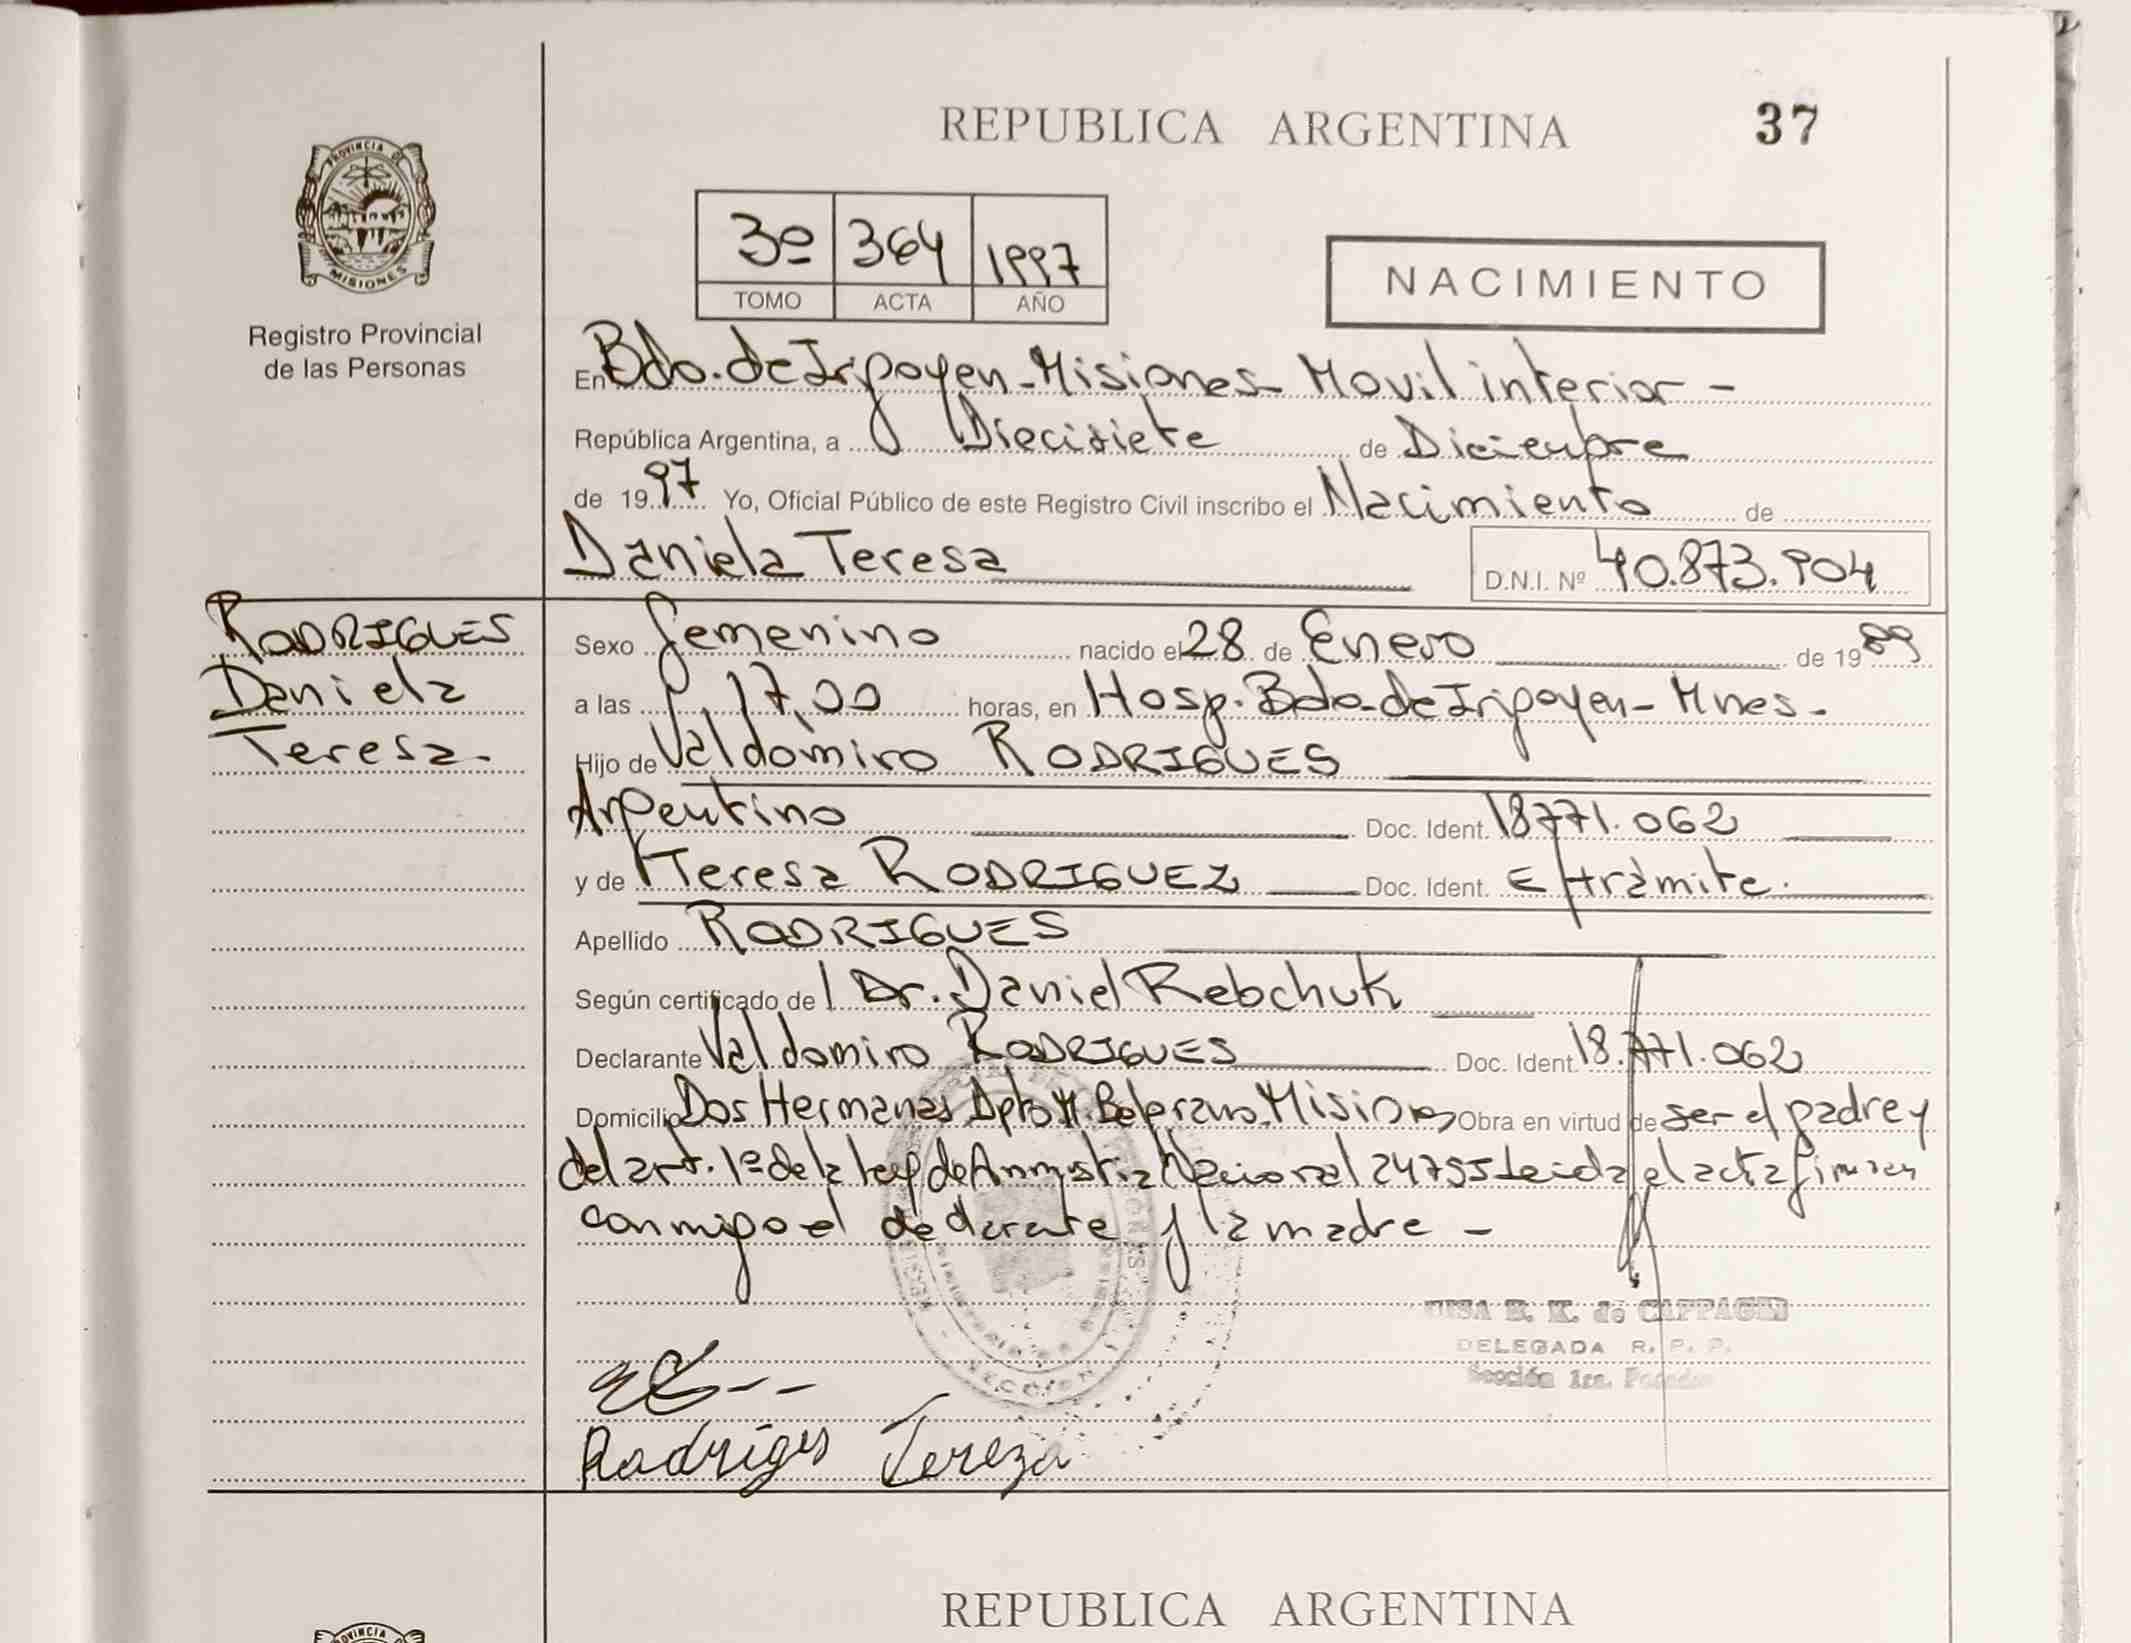 REPUBLICA ARGENTINA
37
PROVINCIA DE MISIONES
Registro Provincial
de las Personas
3º 364 1997
TOMO ACTA AÑO
NACIMIENTO
En Bdo. de Irigoyen - Misiones - Movil interior -
República Argentina, a Diecisiete de Diciembre
de 1997 Yo, Oficial Público de este Registro Civil inscribo el Nacimiento de
Daniela Teresa D.N.I. Nº 40.873.904
RODRIGUES
Daniela
Teresa.
Sexo femenino nacido el 28 de Enero de 1989
a las 17,00 horas, en Hosp. Bdo. de Irigoyen - Mnes -
Hijo de Valdomiro RODRIGUES
Argentino Doc. Ident. 18771.062
y de Teresa RODRIGUEZ Doc. Ident. E/trámite.
Apellido RODRIGUES
Según certificado de Dr. Daniel Rebchuk
Declarante Valdomiro RODRIGUES Doc. Ident. 18.771.062
Domicilio Dos Hermanas Dpto M. Belgrano. Misiones Obra en virtud de ser el padre y
del art. 1º de la ley de Amnistia Nacional 24755 Leida el acta firman
conmigo el declarante y la madre -
de CAPPAGLI
DELEGADA R. P. P.
Sección 1ra.
Rodrigues Tereza
REPUBLICA ARGENTINA
PROVINCIA